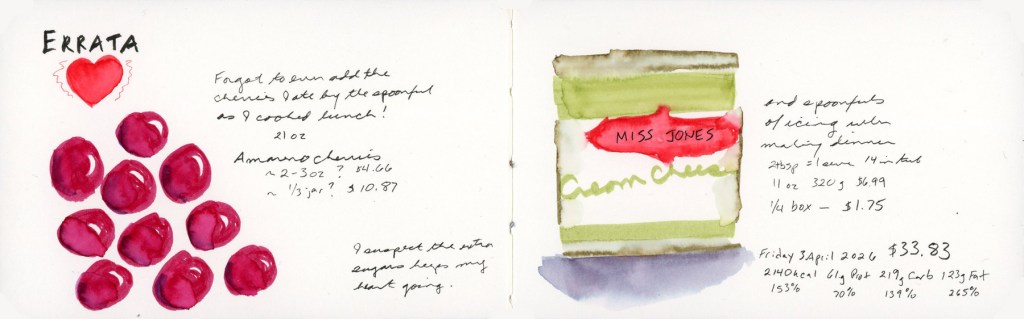 ERRATA
Forgot to even add the
cherries I ate by the spoonful
as I cooked lunch!
21 oz
Amareno cherries
~ 2-3 oz ? $4.66
~ 1/3 jar? $10.87
I suspect the extra
sugars keeps my
heart going.
MISS JONES
Cream Cheese
and spoonfuls
of icing when
making dinner
2 tbsp = 1 serve 14 in tub
11 oz 320 g $6.99
1/4 box — $1.75
Friday 3 April 2026 $33.83
2140 kcal 61g Prot 219g Carb 123g Fat
153% 70% 139% 265%